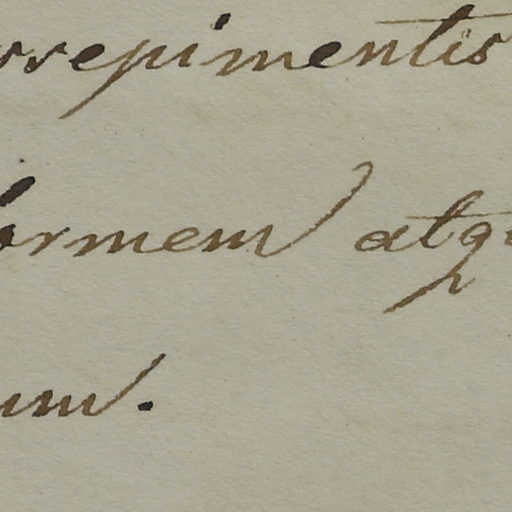 ssepimentis
formem atq
um.